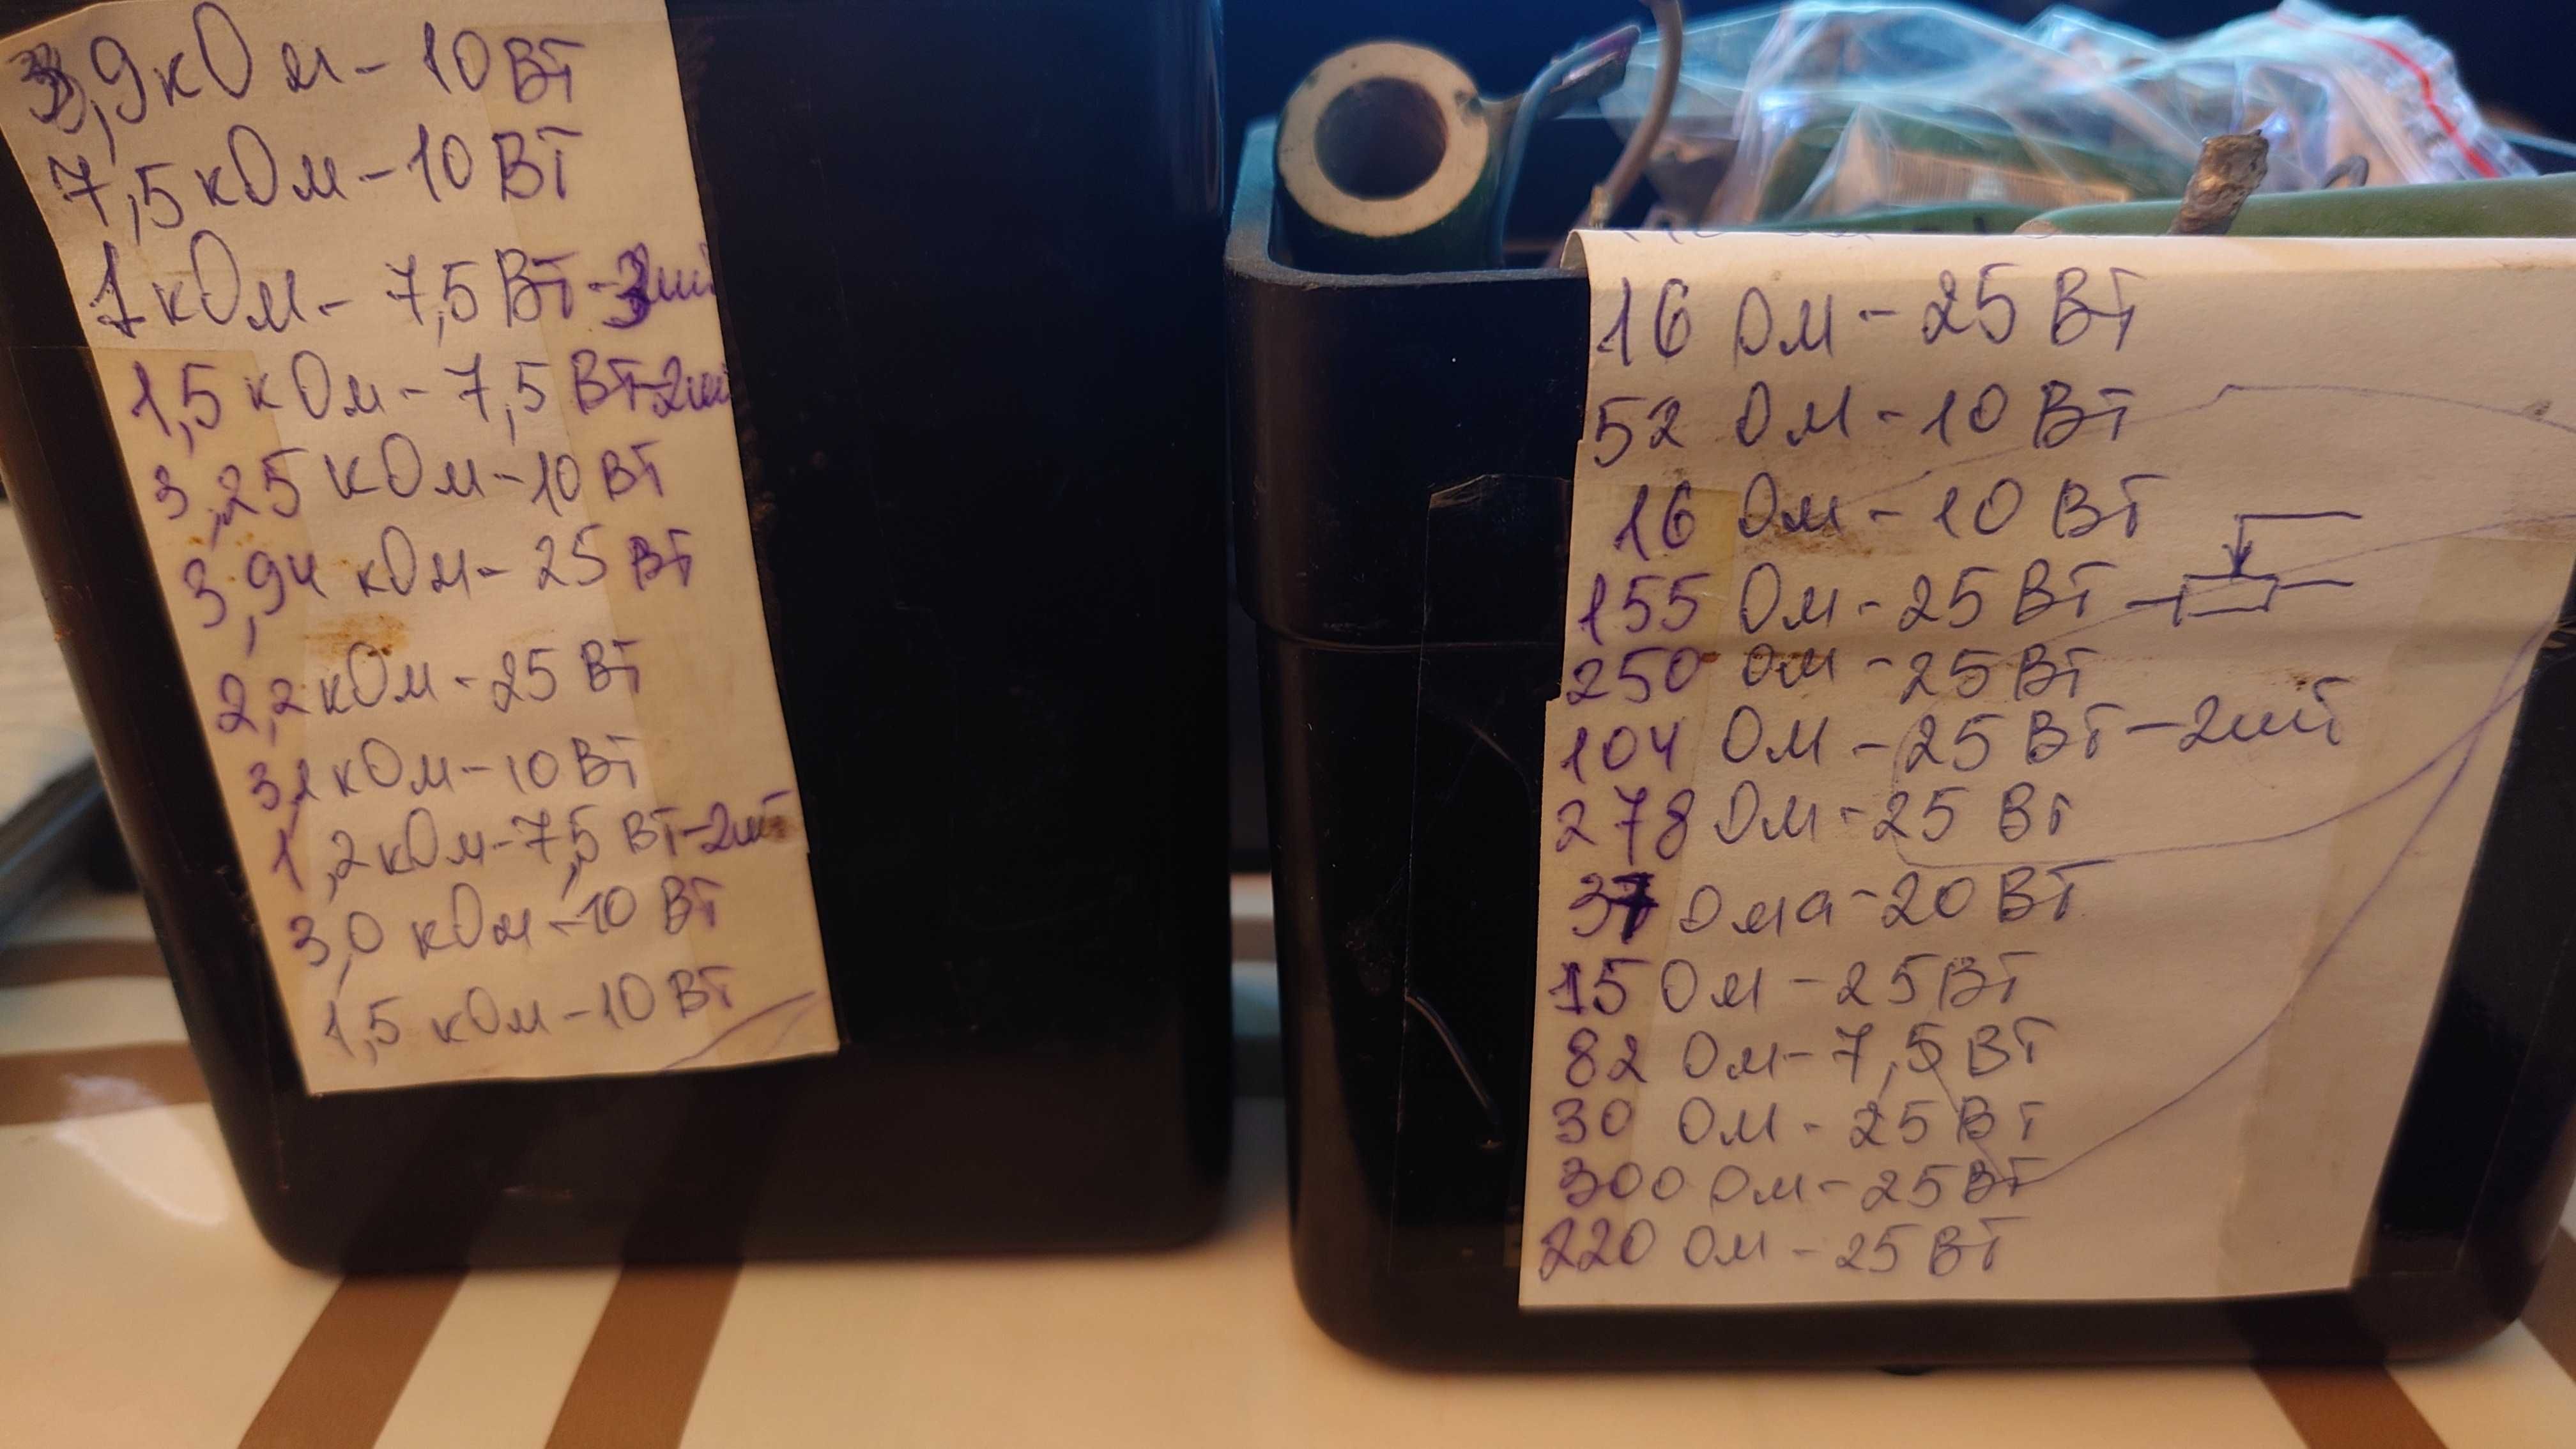 3,9 кОм - 10 Вт
7,5 кОм - 10 Вт
1 кОм - 7,5 Вт - 3шт
1,5 кОм - 7,5 Вт-2шт
3,25 кОм - 10 Вт
3,94 кОм - 25 Вт
2,2 кОм - 25 Вт
кОм - 10 Вт
1,2 кОм - 7,5 Вт-2шт
3,0 кОм - 10 Вт
1,5 кОм - 10 Вт
16 Ом - 25 Вт
52 Ом - 10 Вт
16 Ом - 10 Вт
155 Ом - 25 Вт
250 Ом - 25 Вт
104 Ом - 25 Вт - 2шт
278 Ом - 25 Вт
37 Ома - 20 Вт
15 Ом - 25 Вт
82 Ом - 7,5 Вт
30 Ом - 25 Вт
300 Ом - 25 Вт
220 Ом - 25 Вт